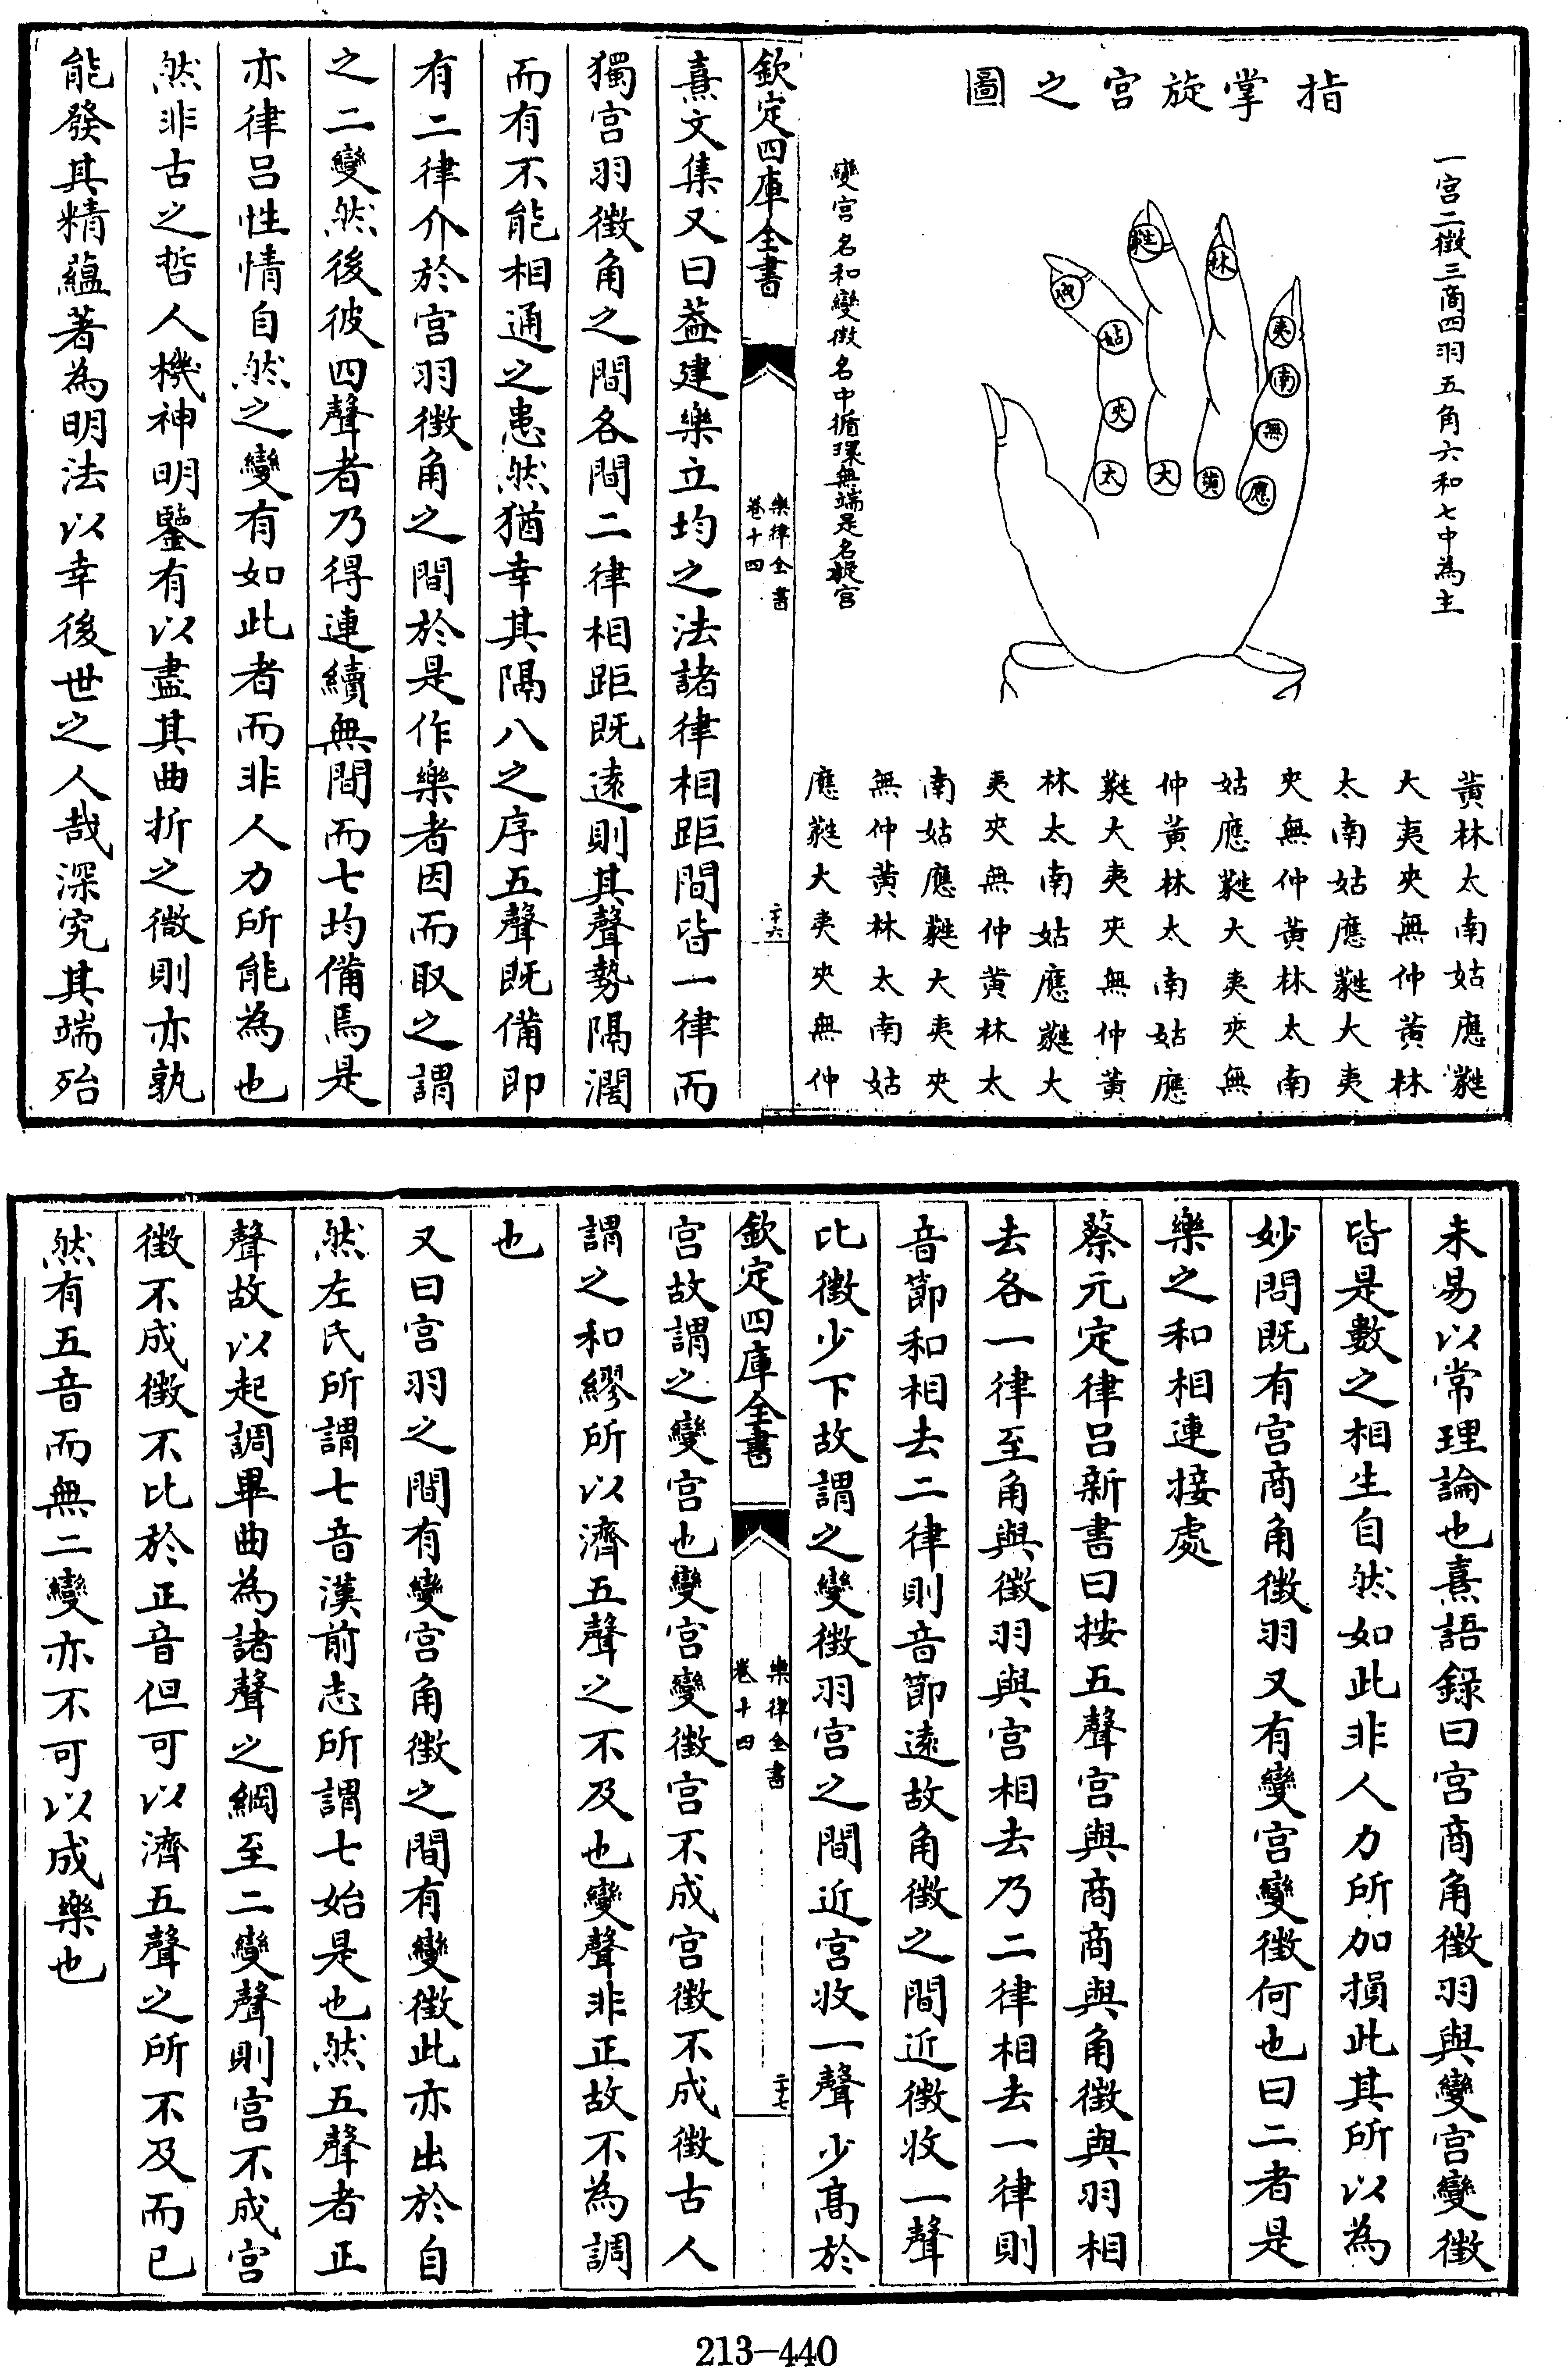 指掌旋宮之圖
一宮二徵三商四羽五角六和七中為主
仲
蕤
林
夷
姑
南
夾
無
太
大
黃
應
變宮名和變徵名中循環無端是名旋宮
黃林太南姑應蕤
大夷夾無仲黃林
太南姑應蕤大夷
夾無仲黃林太南
姑應蕤大夷夾無
仲黃林太南姑應
蕤大夷夾無仲黃
林太南姑應蕤大
夷夾無仲黃林太
南姑應蕤大夷夾
無仲黃林太南姑
應蕤大夷夾無仲
欽定四庫全書
樂律全書
卷十四
二十六
熹文集又曰葢建樂立均之法諸律相距間皆一律而
獨宮羽徵角之間各間二律相距既遠則其聲勢隔濶
而有不能相通之患然猶幸其隔八之序五聲既備即
有二律介於宮羽徵角之間於是作樂者因而取之謂
之二變然後彼四聲者乃得連續無間而七均備焉是
亦律呂性情自然之變有如此者而非人力所能為也
然非古之哲人機神明鑒有以盡其曲折之微則亦孰
能發其精蘊著為明法以幸後世之人哉深究其端殆
未易以常理論也熹語錄曰宮商角徵羽與變宮變徵
皆是數之相生自然如此非人力所加損此其所以為
妙問既有宮商角徵羽又有變宮變徵何也曰二者是
樂之和相連接處
蔡元定律呂新書曰按五聲宮與商商與角徵與羽相
去各一律至角與徵羽與宮相去乃二律相去一律則
音節和相去二律則音節遠故角徵之間近徵收一聲
比徵少下故謂之變徵羽宮之間近宮收一聲少高於
欽定四庫全書
樂律全書
卷十四
二十七
宮故謂之變宮也變宮變徵宮不成宮徵不成徵古人
謂之和繆所以濟五聲之不及也變聲非正故不為調
也
又曰宮羽之間有變宮角徵之間有變徵此亦出於自
然左氏所謂七音漢前志所謂七始是也然五聲者正
聲故以起調畢曲為諸聲之綱至二變聲則宮不成宮
徵不成徵不比於正音但可以濟五聲之所不及而已
然有五音而無二變亦不可以成樂也
213-440